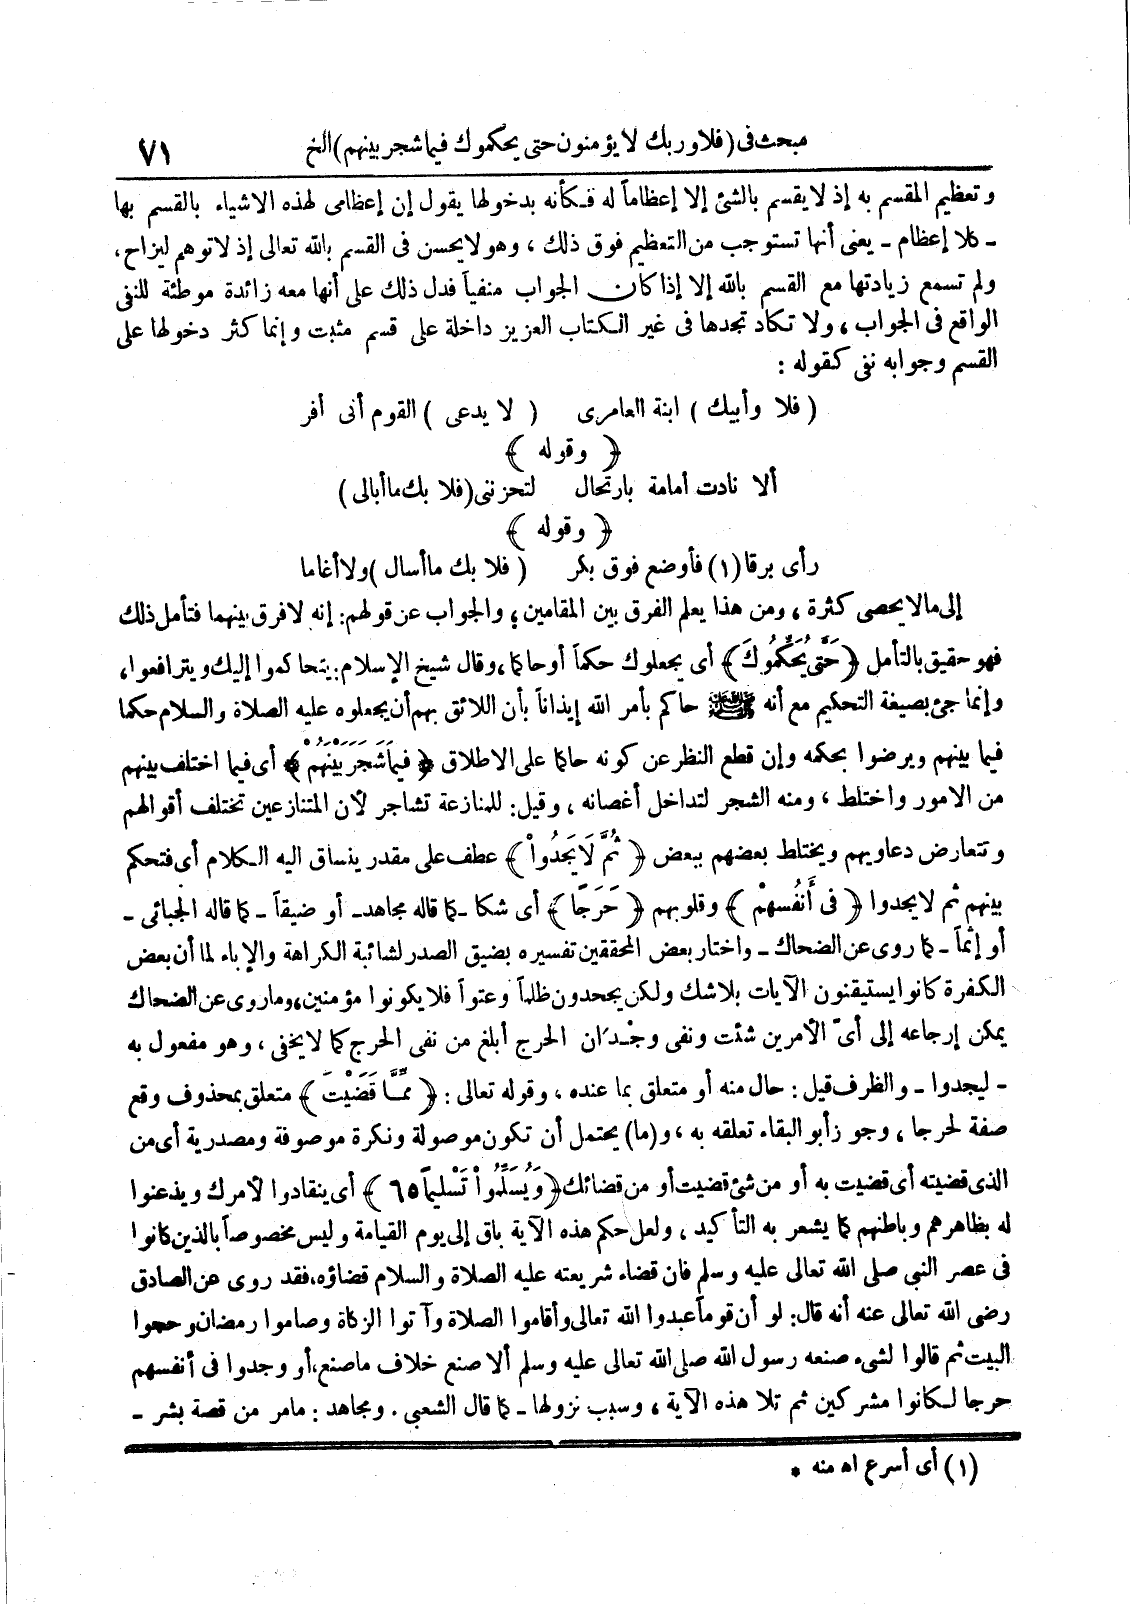 مبحث فى (فلا وربك لا يؤمنون حتى يحكموك فيما شجر بينهم) الخ ٧١
وتعظيم المقسم به إذ لا يقسم بالشئ إلا إعظاماً له فكأنه بدخولها يقول إن إعظامى لهذه الاشياء بالقسم بها
- كلا إعظام - يعنى أنها تستوجب من التعظيم فوق ذلك ، وهو لا يحسن فى القسم بالله تعالى إذ لا توهم ليزاح ،
ولم تسمع زيادتها مع القسم بالله إلا إذا كان الجواب منفياً فدل ذلك على أنها معه زائدة موطئة للنفى
الواقع فى الجواب ، ولا تكاد تجدها فى غير الكتاب العزيز داخلة على قسم مثبت وإنما كثر دخولها على
القسم وجوابه نفى كقوله :
( فلا وأبيك ) ابنة العامرى ( لا يدعى ) القوم أنى أفر
﴿ وقوله ﴾
ألا نادت أمامة بارتحال لتحزننى (فلا بك ما أبالى)
﴿ وقوله ﴾
رأى برقا (١) فأوضع فوق بكر ( فلا بك ما أسال ) ولا أغاما
إلى مالا يحصى كثرة ، ومن هذا يعلم الفرق بين المقامين ، والجواب عن قولهم : إنه لا فرق بينهما فتأمل ذلك
فهو حقيق بالتأمل ﴿ حَتَّى يُحَكِّمُوكَ ﴾ أى يجعلوك حكماً أو حاكما ، وقال شيخ الإسلام : يتحاكموا إليك ويترافعوا ،
وإنما جئ بصيغة التحكيم مع أنه ﷺ حاكم بأمر الله إيذاناً بأن اللائق بهم أن يجعلوه عليه الصلاة والسلام حكما
فيما بينهم ويرضوا بحكمه وإن قطع النظر عن كونه حاكما على الاطلاق ﴿ فِيمَا شَجَرَ بَيْنَهُمْ ﴾ أى فيما اختلف بينهم
من الامور واختلط ، ومنه الشجر لتداخل أغصانه ، وقيل : للمنازعة تشاجر لأن المتنازعين تختلف أقوالهم
وتتعارض دعاويهم ويختلط بعضهم ببعض ﴿ ثُمَّ لَا يَجِدُواْ ﴾ عطف على مقدر ينساق اليه الكلام أى فتحكم
بينهم ثم لا يجدوا ﴿ فى أَنفُسِهِمْ ﴾ وقلوبهم ﴿ حَرَجًا ﴾ أى شكا - كما قاله مجاهد - أو ضيقاً - كما قاله الجبائى -
أو إثماً - كما روى عن الضحاك - واختار بعض المحققين تفسيره بضيق الصدر لشائبة الكراهة والإباء لما أن بعض
الكفرة كانوا يستيقنون الآيات بلا شك ولكن يجحدون ظلماً وعتواً فلا يكونوا مؤمنين ، وما روى عن الضحاك
يمكن إرجاعه إلى أىّ الأمرين شئت ونفى وجدان الحرج أبلغ من نفى الحرج كما لا يخفى ، وهو مفعول به
- ليجدوا - والظرف قيل : حال منه أو متعلق بما عنده ، وقوله تعالى : ﴿ مِّمَّا قَضَيْتَ ﴾ متعلق بمحذوف وقع
صفة لحرجا ، وجوز أبو البقاء تعلقه به ، و(ما) يحتمل أن تكون موصولة ونكرة موصوفة ومصدرية أى من
الذى قضيته أى قضيت به أو من شئ قضيت أو من قضائك ﴿ وَيُسَلِّمُواْ تَسْلِيمًا ٦٥ ﴾ أى ينقادوا لأمرك ويذعنوا
له بظاهرهم وباطنهم كما يشعر به التأكيد ، ولعل حكم هذه الآية باق إلى يوم القيامة وليس مخصوصاً بالذين كانوا
فى عصر النبى صلى الله تعالى عليه وسلم فان قضاء شريعته عليه الصلاة والسلام قضاؤه ، فقد روى عن الصادق
رضى الله تعالى عنه أنه قال : لو أن قوماً عبدوا الله تعالى وأقاموا الصلاة وآتوا الزكاة وصاموا رمضان وحجوا
البيت ثم قالوا لشىء صنعه رسول الله صلى الله تعالى عليه وسلم ألا صنع خلاف ما صنع ، أو وجدوا فى أنفسهم
حرجا لكانوا مشركين ثم تلا هذه الآية ، وسبب نزولها - كما قال الشعبى . ومجاهد : مامر من قصة بشر -
(١) أى أسرع اه منه *